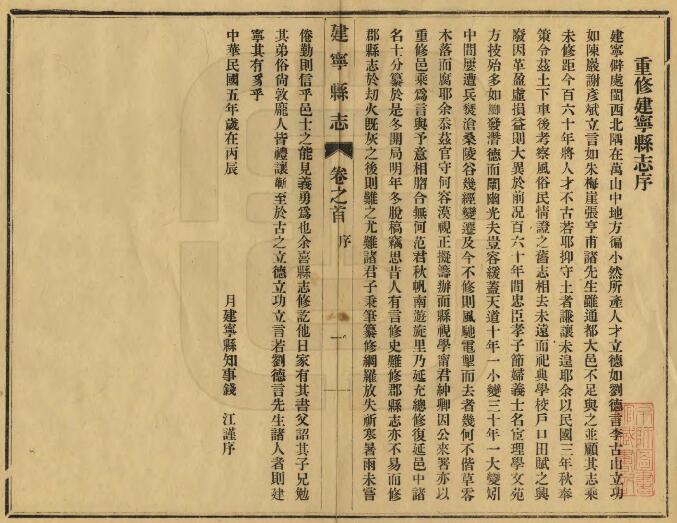 重修建寧縣志序
建寧僻處閩西北隅在萬山中地方徧小然所產人才立德如劉德言李古山立功
如陳嚴謝彥斌立言如朱梅崖張亨甫諸先生雖通都大邑不足與之並顧其志乘
未修距今百六十年將人才不古若耶抑守土者謙讓未遑耶余以民國三年秋奉
策令茲土下車後考察風俗民情證之舊志相去未遠而祀典學校戶口田賦之興
廢因革盈虛損益則大異於前况百六十年間忠臣孝子節婦義士名宦理學文苑
方技殆多如鯽發潛德而闡幽光夫豈容緩蓋天道十年一小變三十年一大變矧
中間屢遭兵燹滄桑陵谷幾經變遷及今不修則風馳電掣而去者幾何不偕草零
木落而腐耶余忝茲官守何容漠視正擬籌辦而縣視學甯君紳卿因公來署亦以
重修邑乘爲言與予意相脗合無何范君秋帆南遊旋里乃延充總修復延邑中諸
名十分纂於是冬開局明年冬脫稿竊思昔人有言修史難修郡縣志亦不易而修
郡縣志於刼火旣灰之後則難之尤難諸君子秉筆纂修網羅放失祈寒暑雨未嘗
建寧縣志
卷之首 序
一
倦勤則信乎邑士之能見義勇爲也余喜縣志修訖他日家有其書父詔其子兄勉
其弟俗尙敦龐人皆禮讓蘄至於古之立德立功立言若劉德言先生諸人者則建
寧其有豸乎
中華民國五年歲在丙辰
月建寧縣知事錢 江謹序